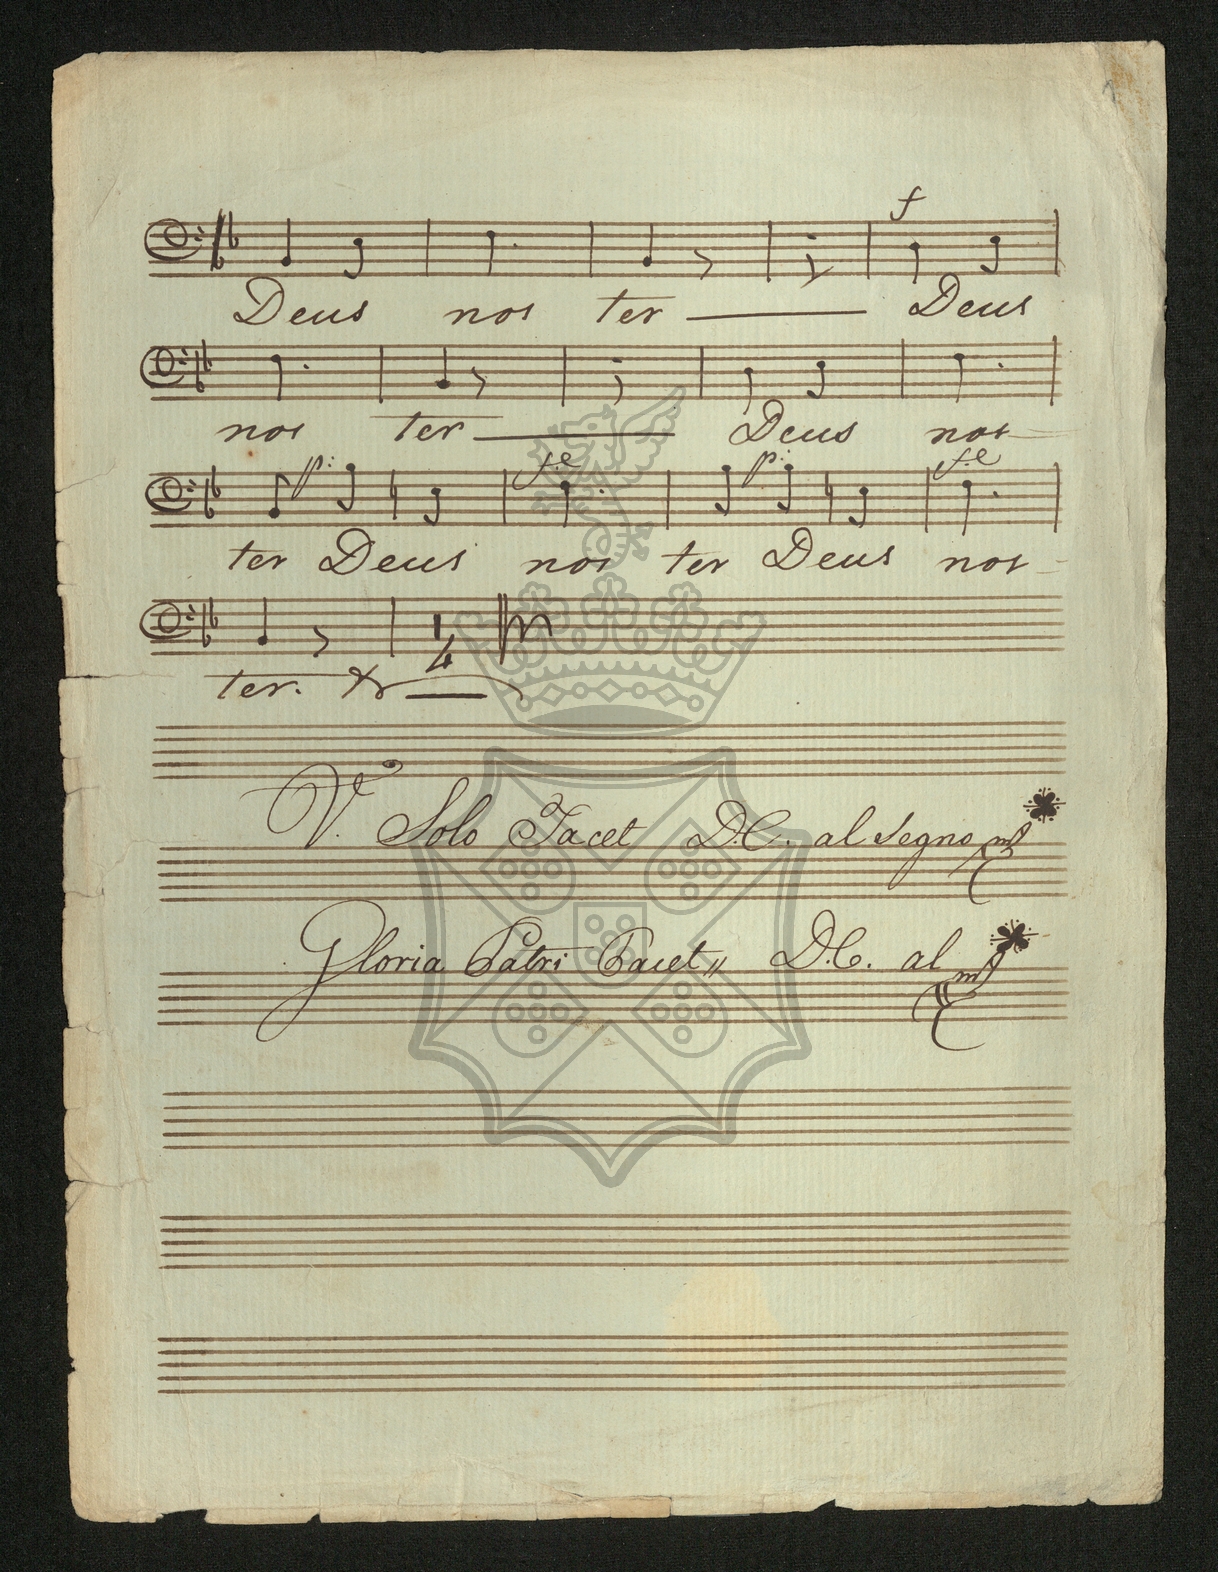 f
Deus nos ter Deus
nos ter Deus nos
p: f.e p: f.e
ter Deus nos ter Deus nos
4
ter.
V. Solo Tacet D.C. al Segno
Gloria Patri Tacet D.C. al